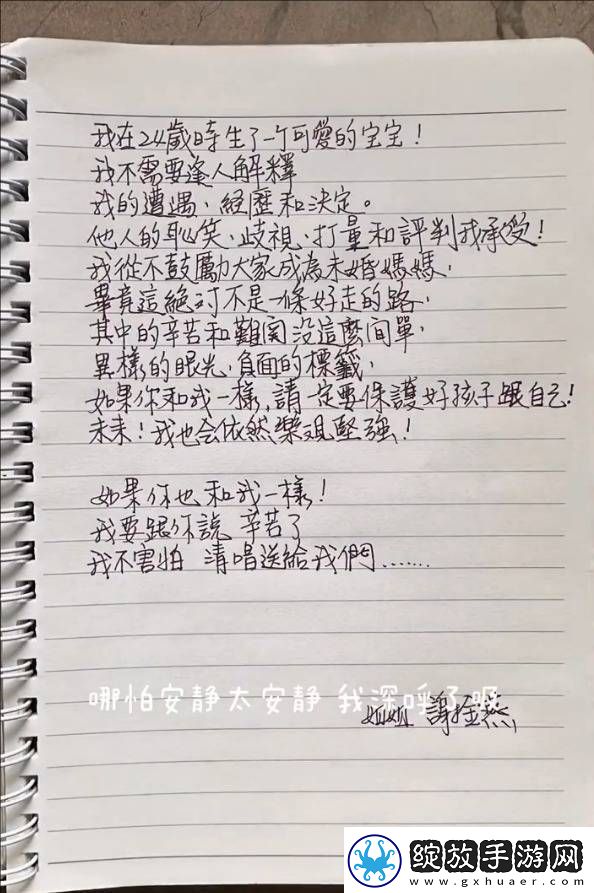 我在24歲時生了一个可愛的宝宝！
我不需要逢人解釋
我的遭遇，經歷和決定。
他人的恥笑，歧視，打量和評判我承受！
我從不鼓勵大家成為未婚媽媽，
畢竟這絕对不是一條好走的路，
其中的辛苦和難関没這麼简單，
異樣的眼光，負面的標籤，
如果你和我一樣，請一定要保護好孩子跟自己！
未来！我也会依然樂观堅強！
如果你也和我一樣！
我要跟你說 辛苦了
我不害怕 清唱送給我們……
哪怕安静太安静 我深呼了吸
姐姐 謝金燕
绽放手游网
www.gxhuaer.com